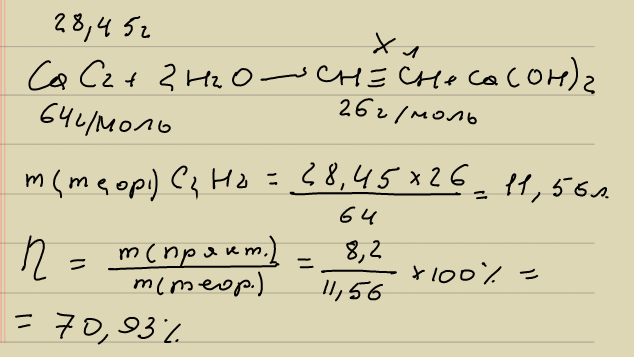 28,45г
x л
CaC2 + 2H2O → CH≡CH + Ca(OH)2
64г/моль 26г/моль
m(теор.) C2H2 = 28,45 x 26 / 64 = 11,56л.
η = m(практ.) / m(теор.) = 8,2 / 11,56 x 100% =
= 70,93%